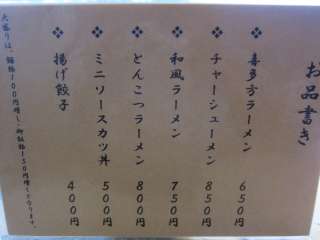 お品書き
❖ 喜多方ラーメン 650円
❖ チャーシューメン 850円
❖ 和風ラーメン 750円
❖ とんこつラーメン 800円
❖ ミニソースカツ丼 500円
❖ 揚げ餃子 400円
大盛りは、麺類100円増し、御飯類150円増となります。